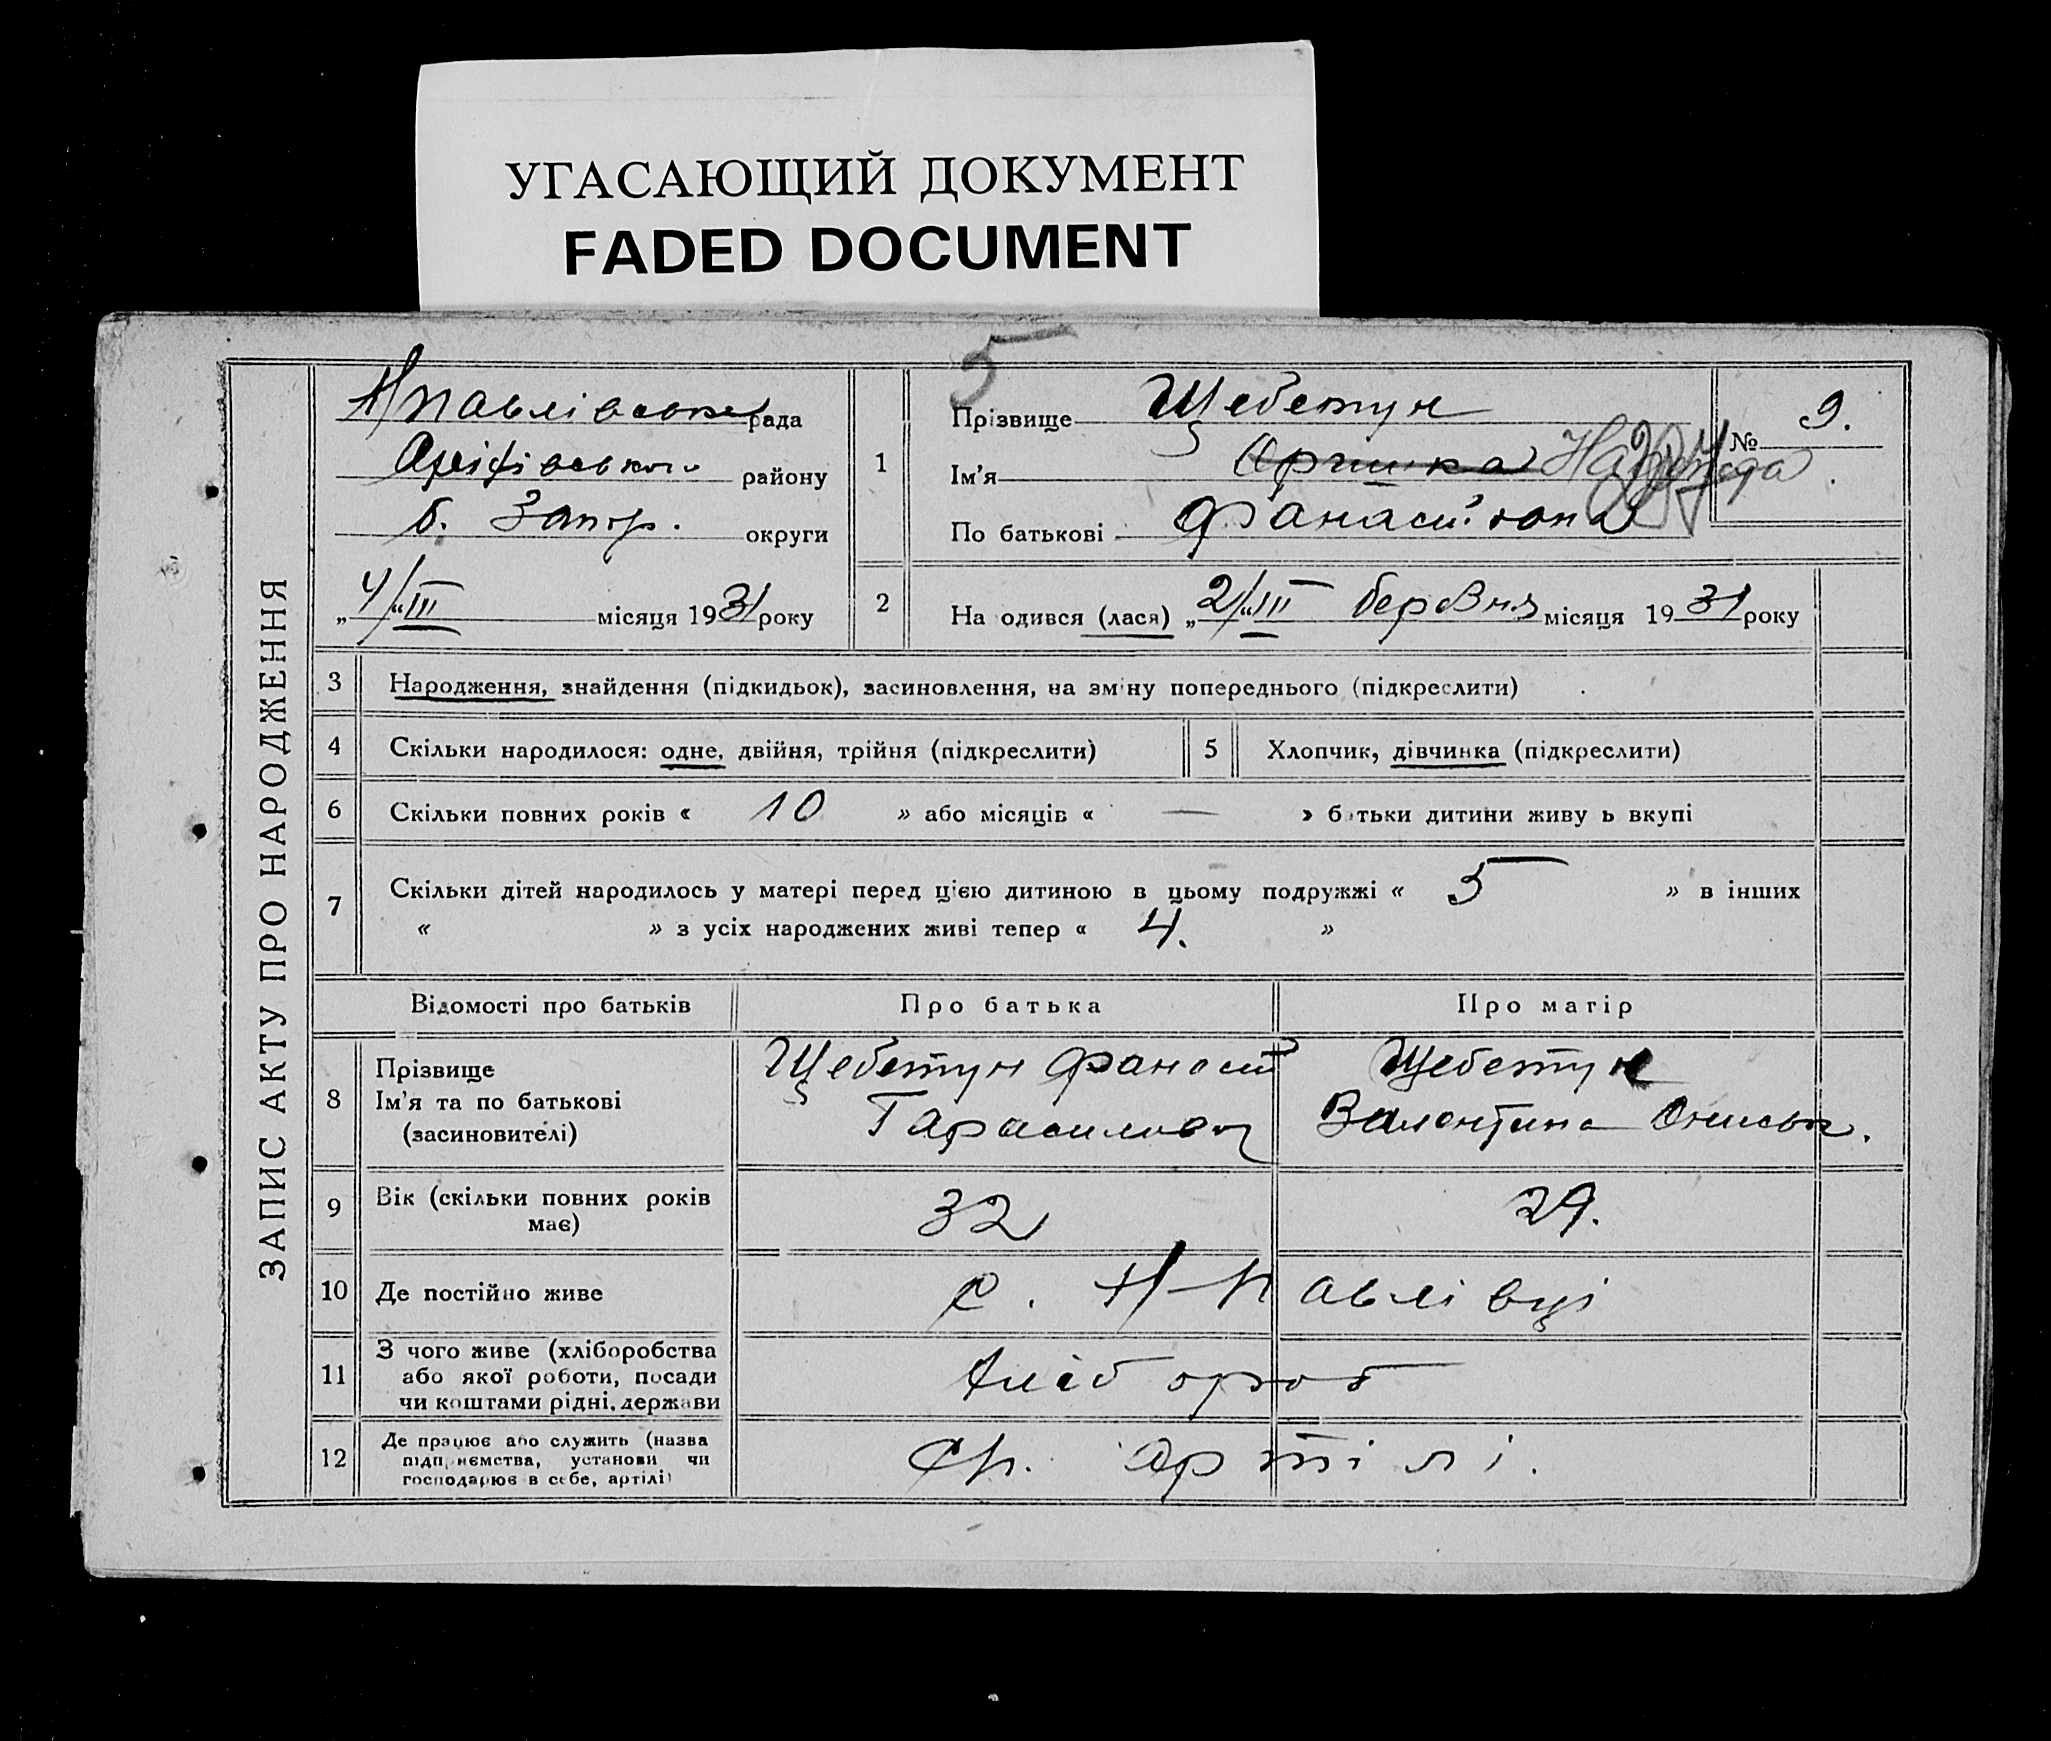 УГАСАЮЩИЙ ДОКУМЕНТ
FADED DOCUMENT
5
ЗАПИС АКТУ ПРО НАРОДЖЕННЯ
Н павлівська рада
району
б. Запор. округи
„4/„III місяця 1931 року
1
Прізвище Щебетун
Ім'я Надежда
По батькові
№ 9.
2
На одився (лася) „2/„III березня місяця 1931 року
3 Народження, знайдення (підкидьок), засиновлення, на зміну попереднього (підкреслити)
4 Скільки народилося: одне, двійня, трійня (підкреслити)
5 Хлопчик, дівчинка (підкреслити)
6 Скільки повних років « 10 » або місяців « — » батьки дитини живу ь вкупі
7 Скільки дітей народилось у матері перед цією дитиною в цьому подружжі « 5 » в інших
« » з усіх народжених живі тепер « 4. »
Відомості про батьків
Про батька
Про матір
8 Прізвище
Ім'я та по батькові
(засиновителі)
Щебетун Фанаст
Щебетун
Валентина
9 Вік (скільки повних років
має)
32
29.
10 Де постійно живе
с. Н-Павлівці
11 З чого живе (хліборобства
або якої роботи, посади
чи коштами рідні, держави
Хлібороб
12 Де працює або служить (назва
підприємства, установи чи
господарює в себе, артілі)
артілі.